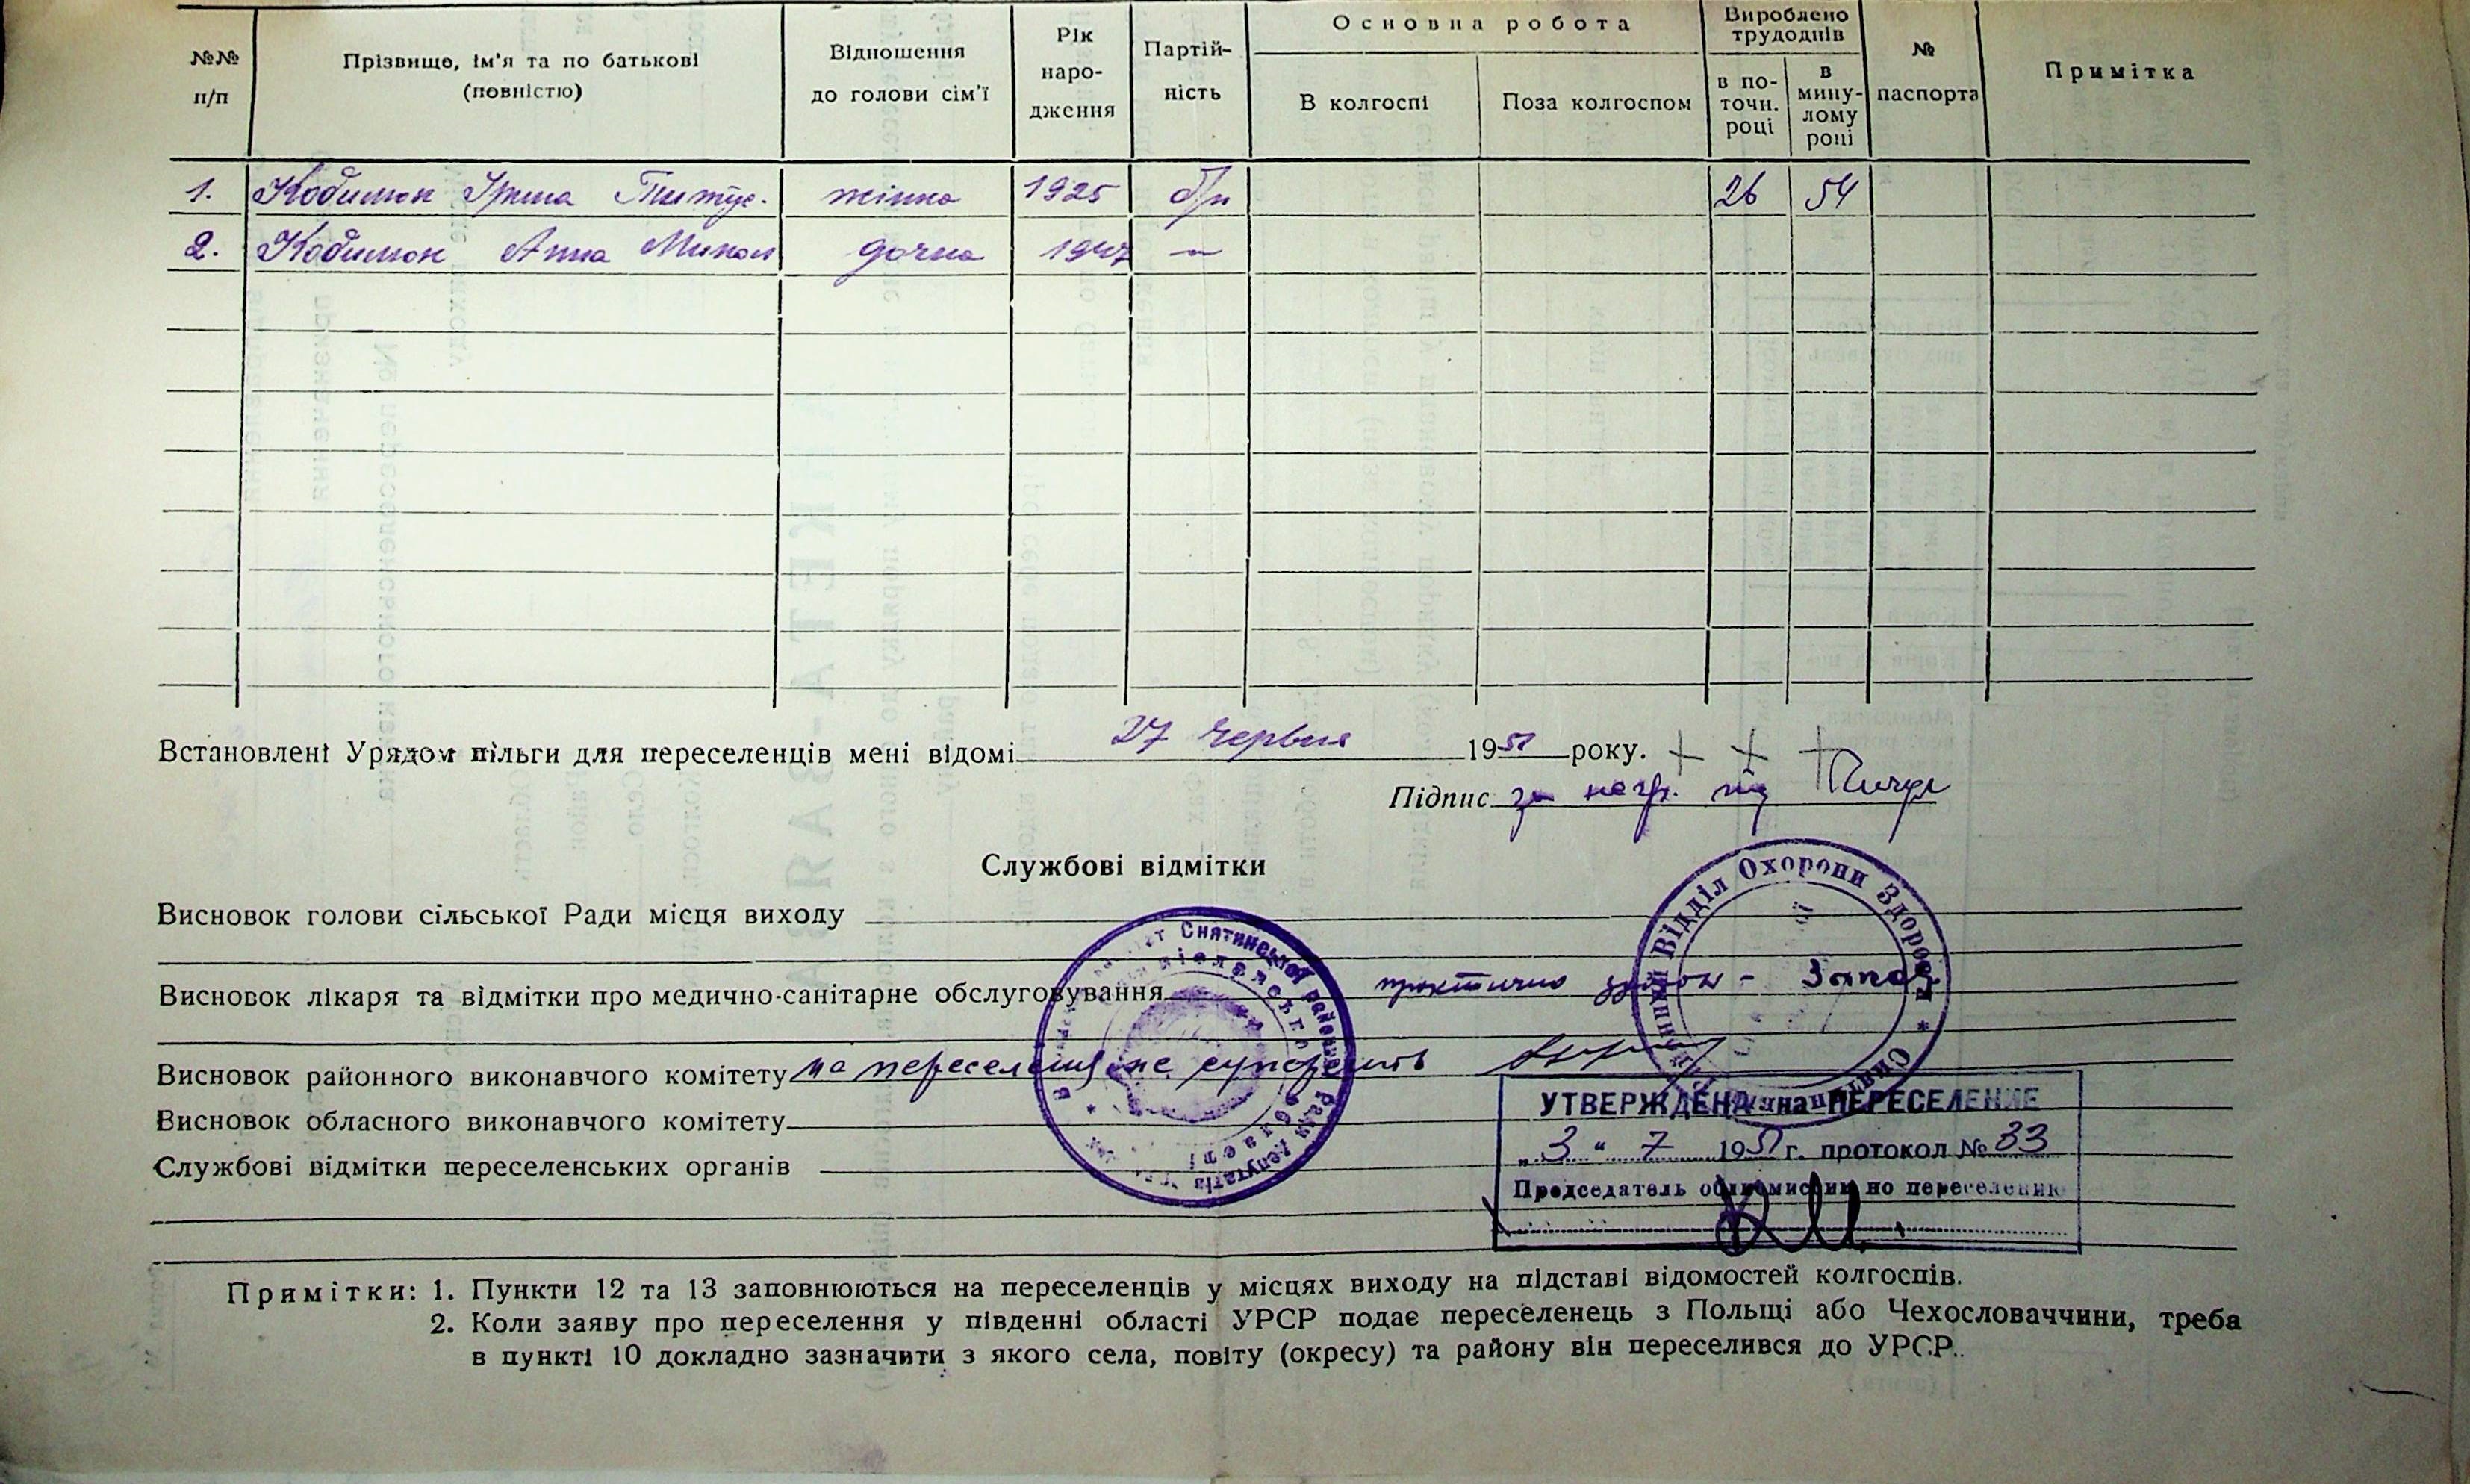 №№ п/п
Прізвище, ім'я та по батькові (повністю)
Відношення до голови сім'ї
Рік народження
Партійність
Основна робота
В колгоспі
Поза колгоспом
Вироблено трудоднів
в поточн. році
в минулому році
№ паспорта
Примітка
1. Кобилюк Ірина жінка 1925 б/п 26 54
2. Кобилюк Анна Микол дочка 1947 —
Встановлені Урядом пільги для переселенців мені відомі 27 червня 1951 року. + + +
Підпис за негр. під
Службові відмітки
Висновок голови сільської Ради місця виходу
Висновок лікаря та відмітки про медично-санітарне обслуговування практично здоров -
Висновок районного виконавчого комітету на переселення не суперечить
Висновок обласного виконавчого комітету
Службові відмітки переселенських органів
Снятинської районної Ради депутатів
області
Відділ Охорони Здоров'я *
УТВЕРЖДЕНА на ПЕРЕСЕЛЕНИЕ
„3“ 7 1951 г. протокол № 33
Председатель облкомиссии по переселению
Примітки: 1. Пункти 12 та 13 заповнюються на переселенців у місцях виходу на підставі відомостей колгоспів.
2. Коли заяву про переселення у південні області УРСР подає переселенець з Польщі або Чехословаччини, треба
в пункті 10 докладно зазначити з якого села, повіту (окресу) та району він переселився до УРСР.